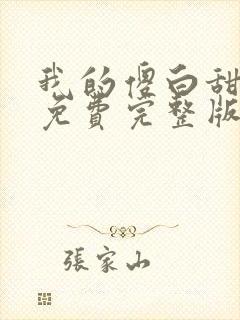 我的傻白甜
免費完整版
張家山